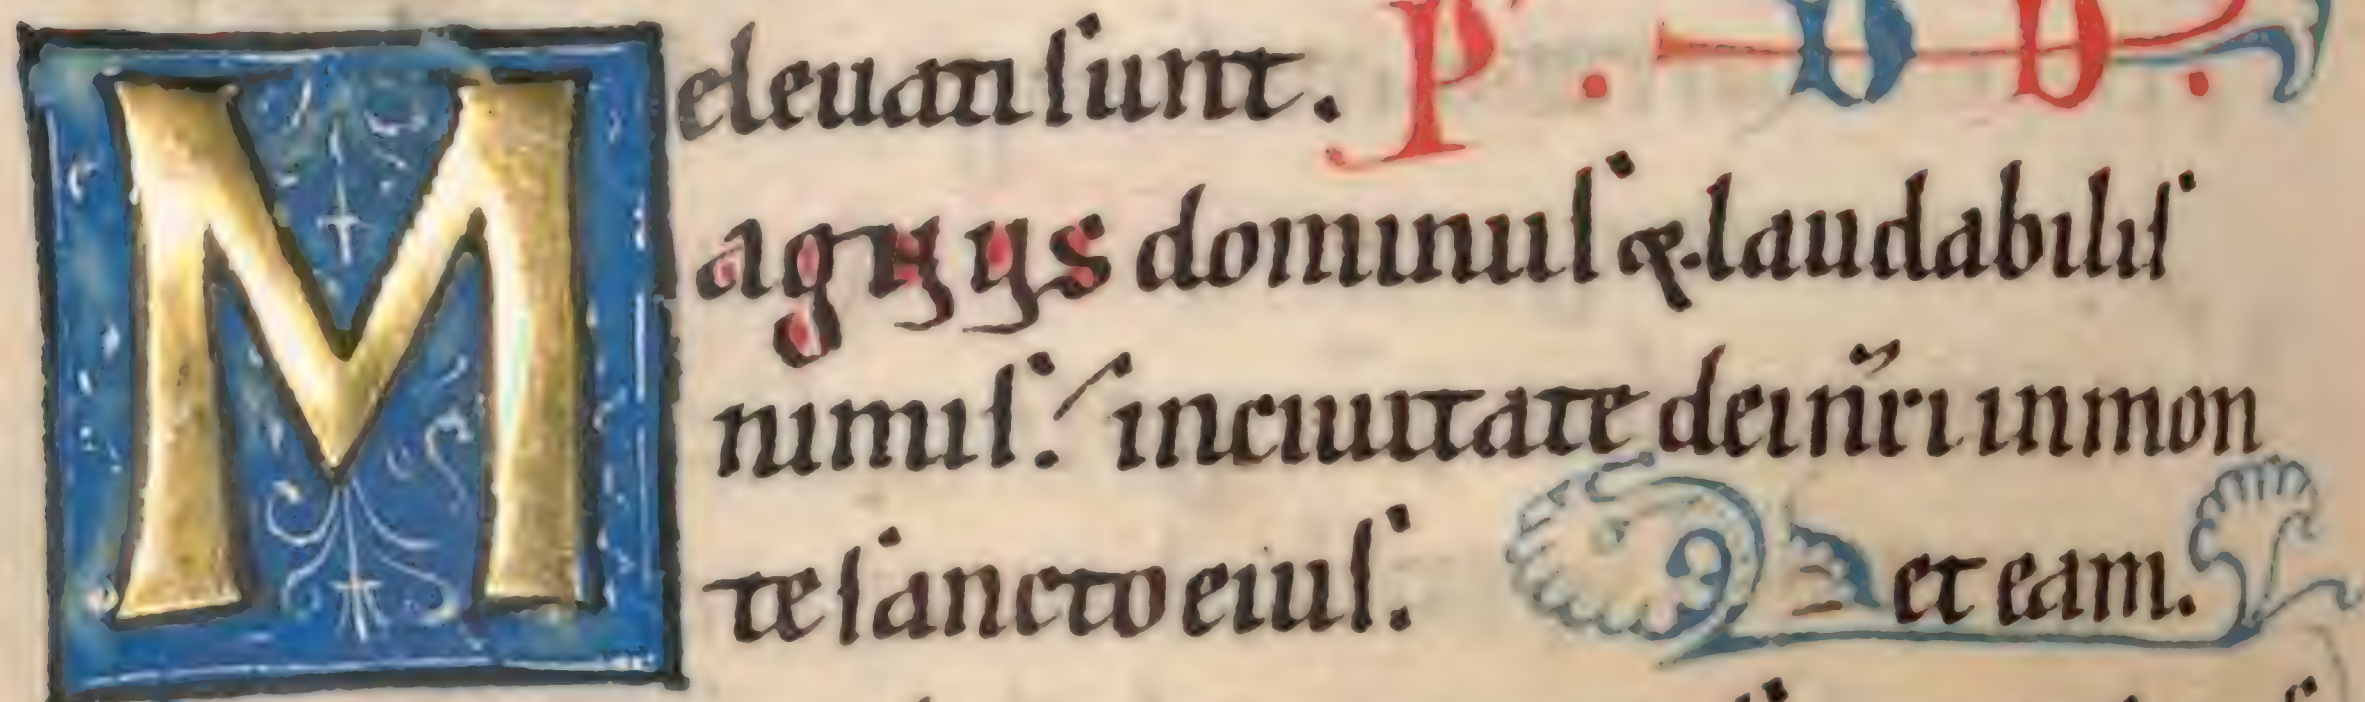 eleuati sunt. P.
MAGNUS dominus & laudabilis
nimis. in ciuitate dei nr̃i in mon
te sancto eius. et eam.